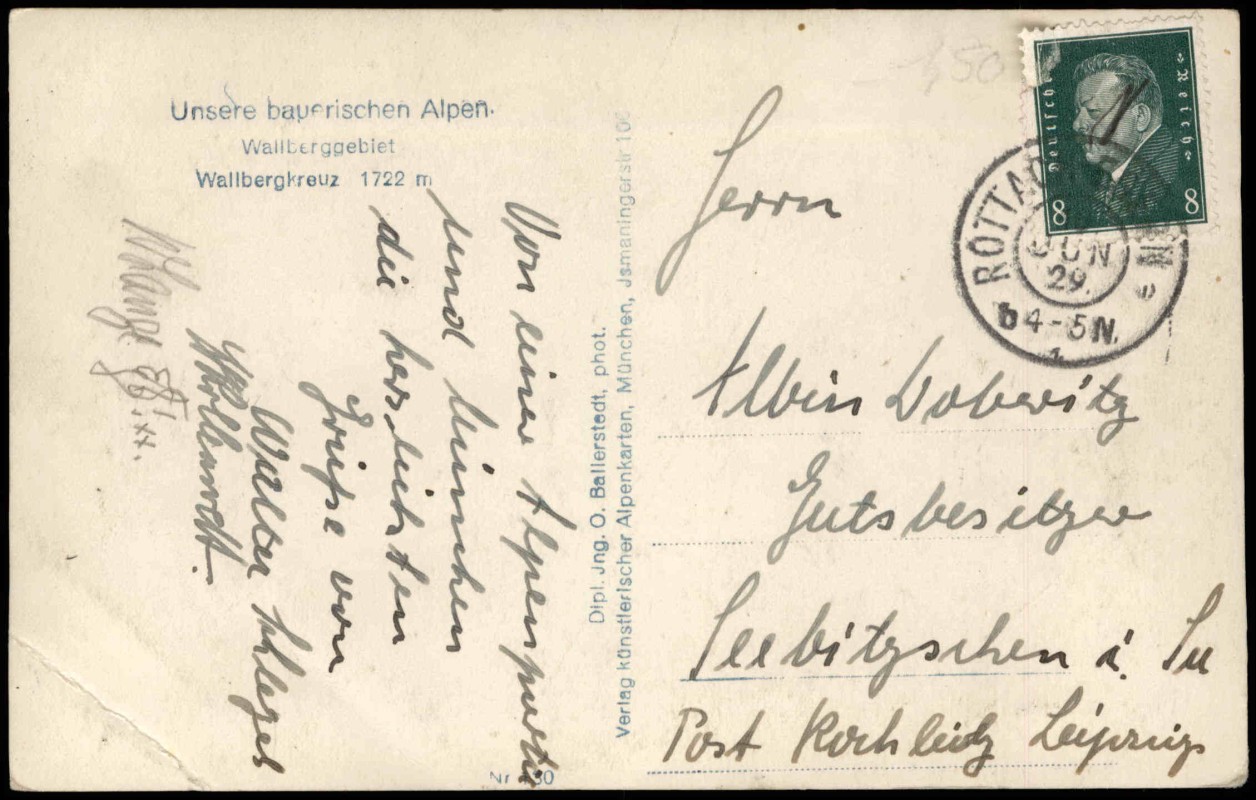 Unsere bayerischen Alpen.
Wallberggebiet
Wallbergkreuz 1722 m
Von einer Alpenpartie
und München
die herzlichsten
Grüße von
Walter
Dipl. Jng. O. Ballerstedt, phot.
Verlag künstlerischer Alpenkarten, München, Jsmaningerstr 10
Deutsches Reich
8 8
ROTTACH
JUN
29.
b 4-5 N.
Herrn
Albin Doberitz
Gutsbesitzer
Seebitzschen i. Sa
Post Leipzig